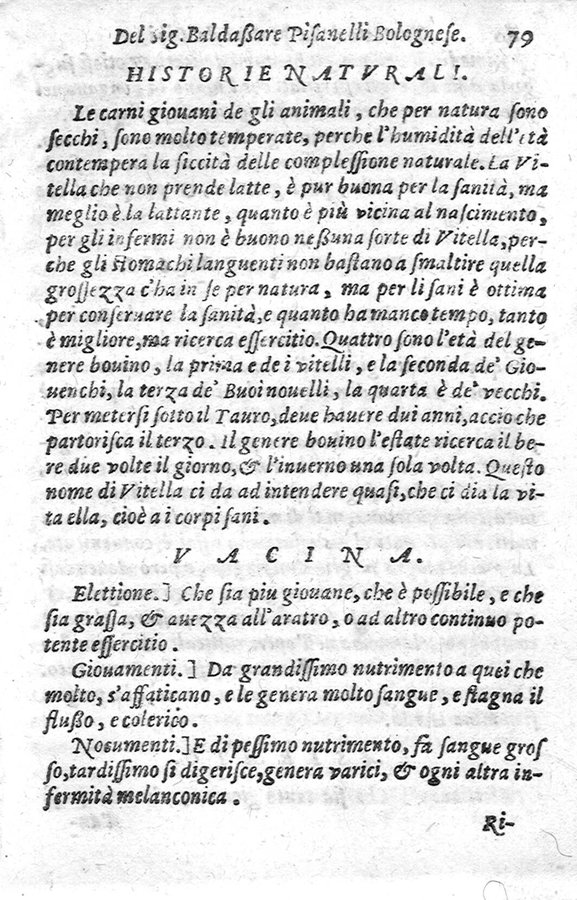 Del Sig. Baldaßare Pisanelli Bolognese. 79
HISTORIE NATVRALI.
Le carni giouani de gli animali, che per natura sono
secchi, sono molto temperate, perche l'humidità dell'età
contempera la siccità delle complessione naturale. La Vi-
tella che non prende latte, è pur buona per la sanità, ma
meglio è la lattante, quanto è più vicina al nascimento,
per gli infermi non è buono neßuna sorte di Vitella, per-
che gli stomachi languenti non bastano a smaltire quella
grossezza c'ha in se per natura, ma per li sani è ottima
per conseruare la sanità, e quanto ha manco tempo, tanto
è migliore, ma ricerca essercitio. Quattro sono l'età del ge-
nere bouino, la prima e de i vitelli, e la seconda de' Gio-
uenchi, la terza de' Buoi nouelli, la quarta è de' vecchi.
Per metersi sotto il Tauro, deue hauere dui anni, accio che
partorisca il terzo. Il genere bouino l'estate ricerca il be-
re due volte il giorno, & l'inuerno una sola volta. Questo
nome di Vitella ci da ad intendere quasi, che ci dia la vi-
ta ella, cioè a i corpi sani.
VACINA.
Elettione.] Che sia piu giouane, che è possibile, e che
sia grassa, & auezza all'aratro, o ad altro continuo po-
tente essercitio.
Giouamenti.] Da grandissimo nutrimento a quei che
molto, s'affaticano, e le genera molto sangue, e stagna il
flußo, e colerico.
Nocumenti.] E di pessimo nutrimento, fa sangue gros
so, tardissimo si digerisce, genera varici, & ogni altra in-
fermità melanconica.
Ri-